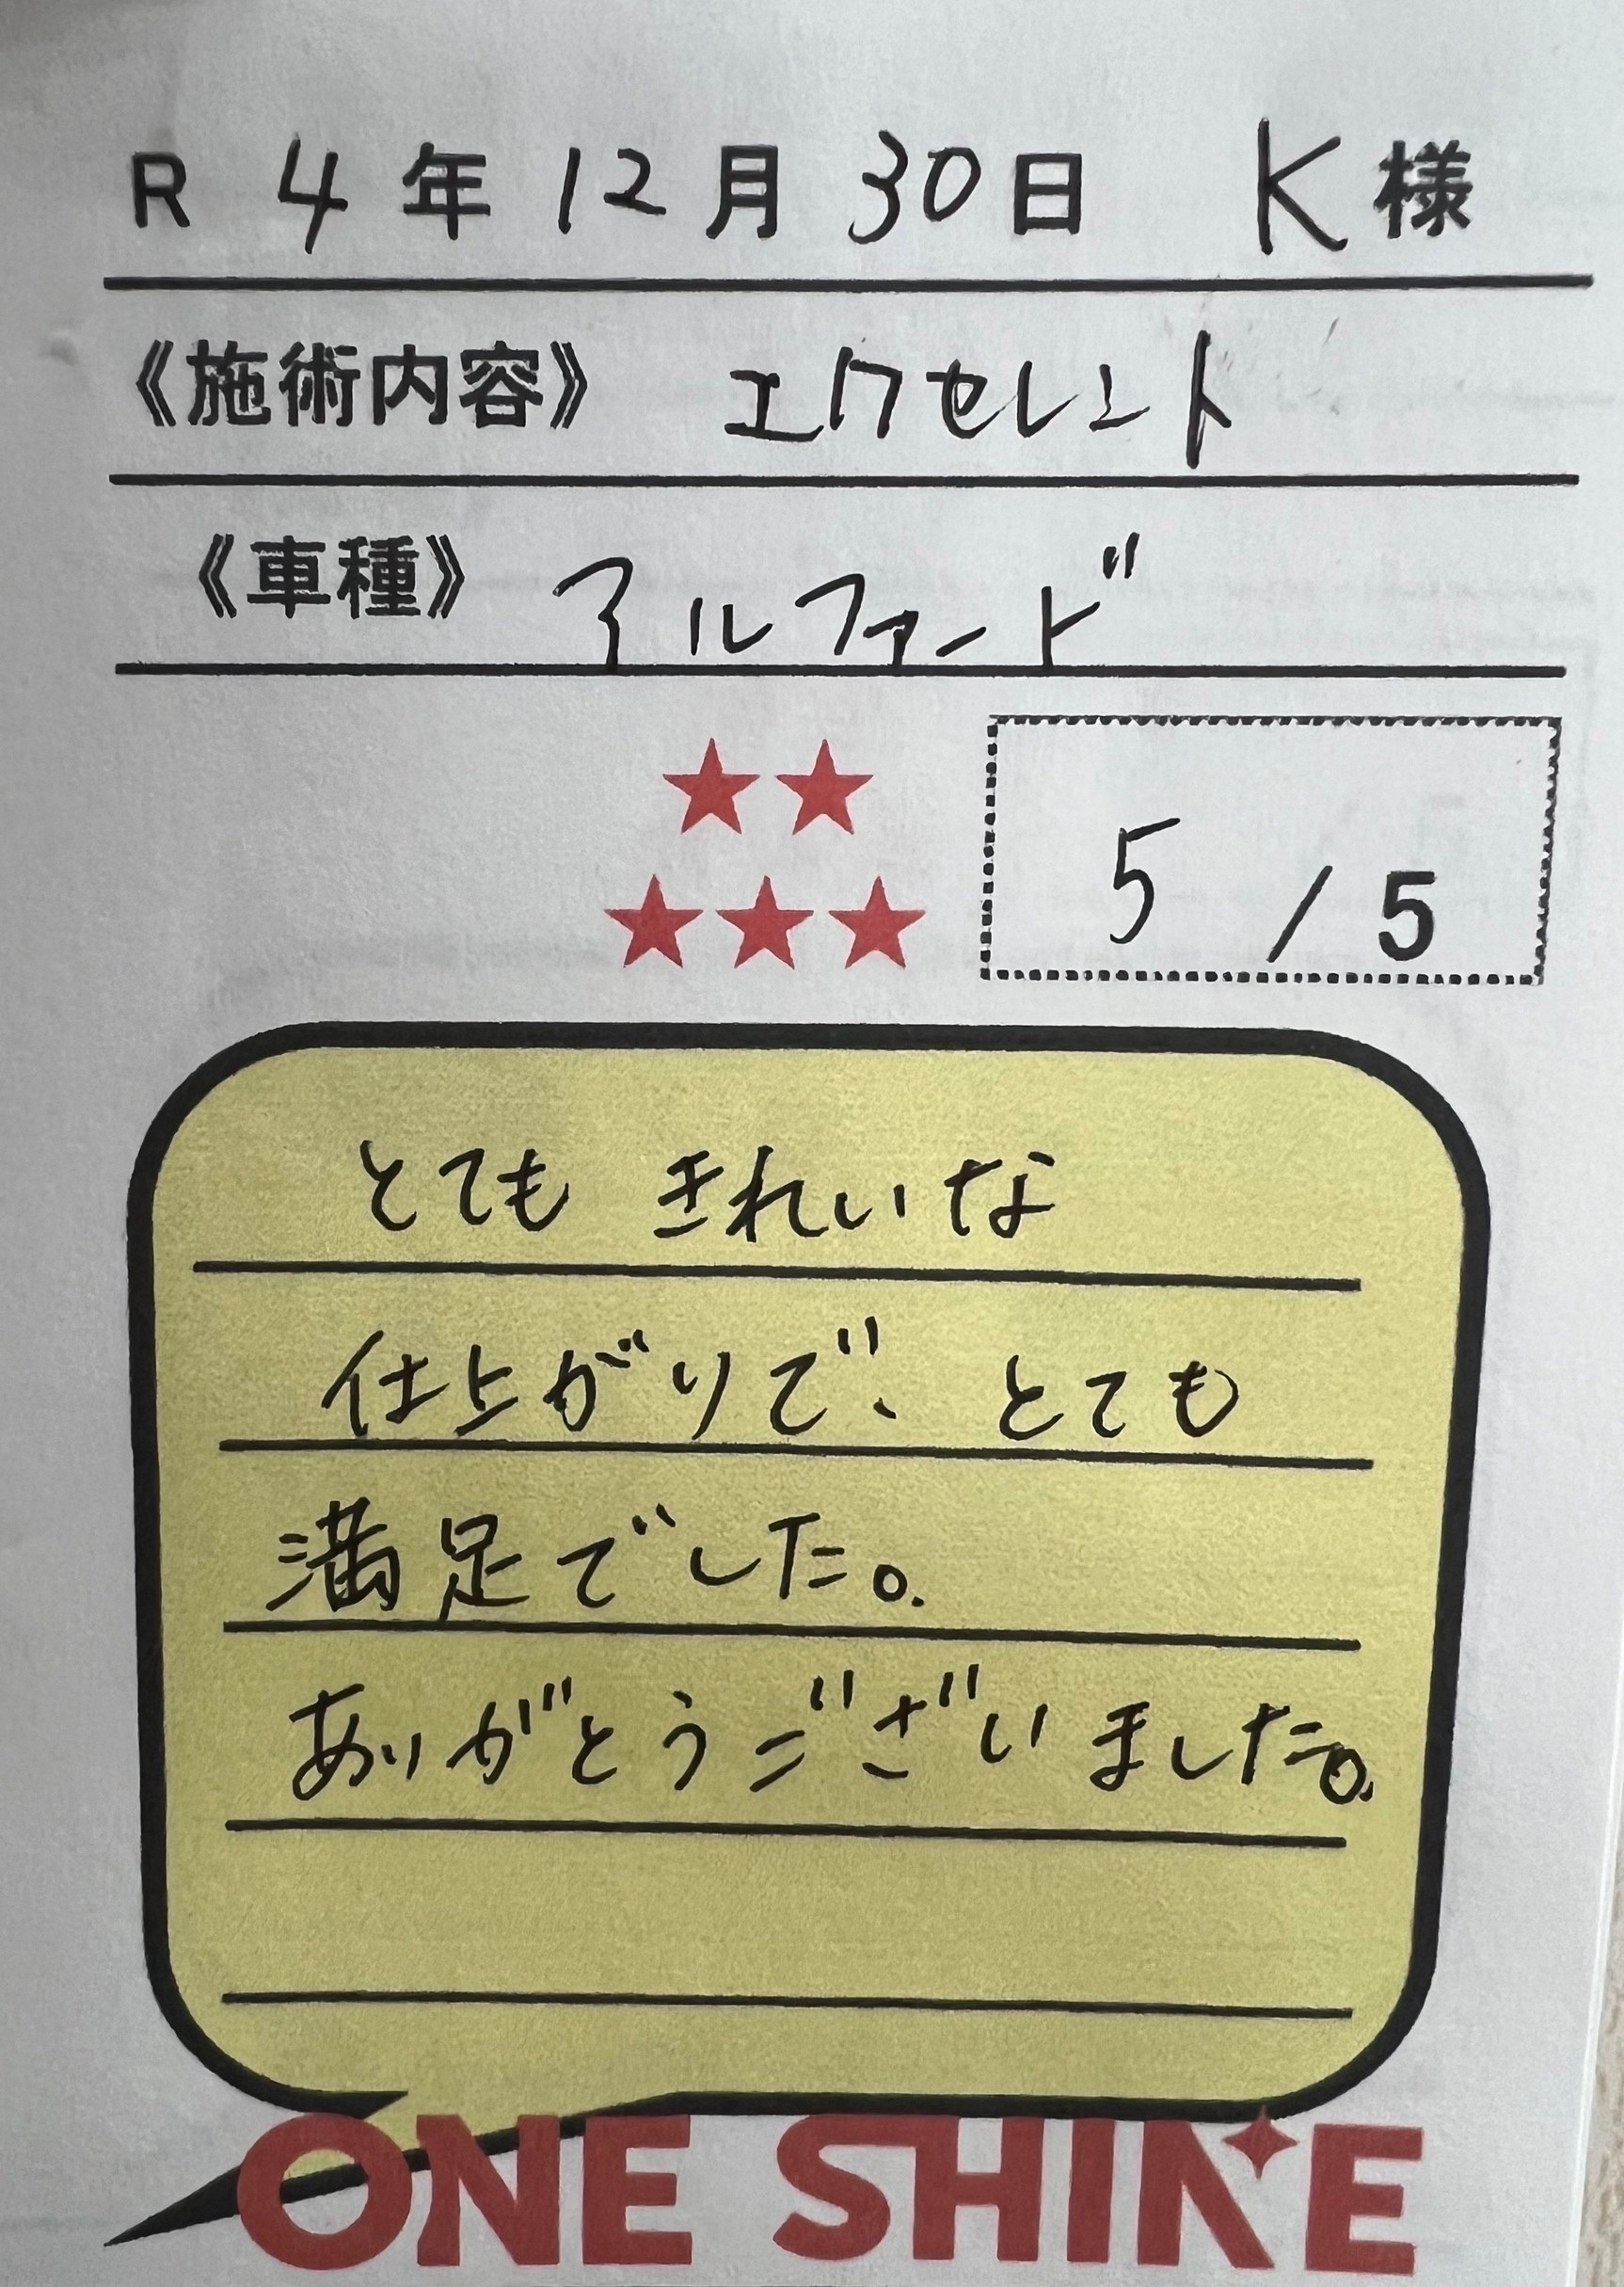 R 4年 12月 30日 K様
《施術内容》 エクセレント
《車種》 アルファード
★★
★★★
5 / 5
とても きれいな
仕上がりで、とても
満足でした。
ありがとうございました。
ONE SHINE